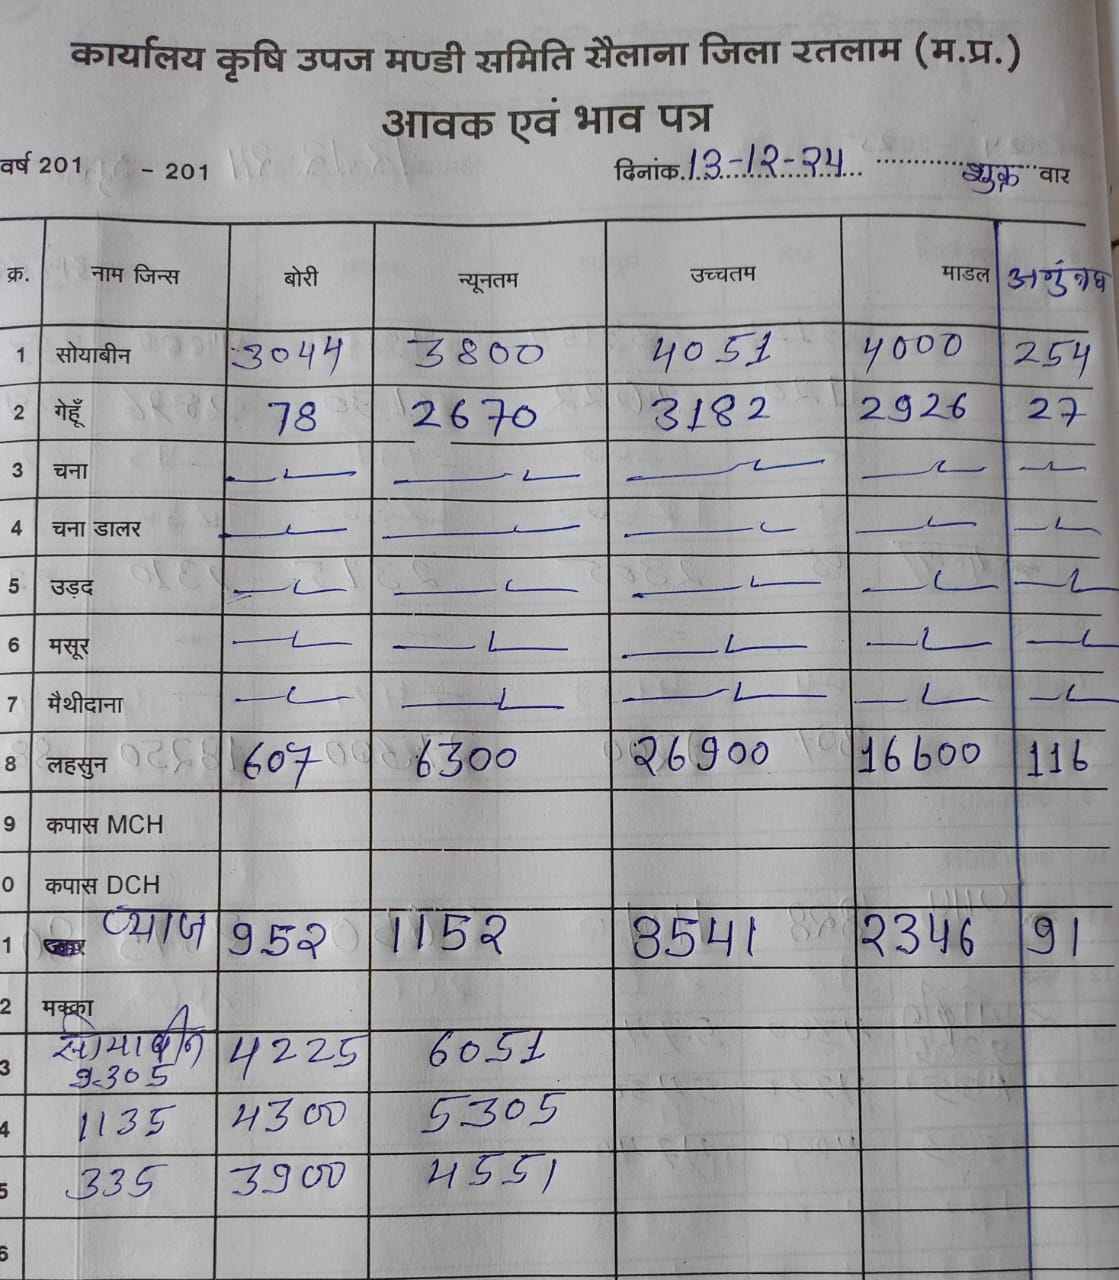 कार्यालय कृषि उपज मण्डी समिति सैलाना जिला रतलाम (म.प्र.)
आवक एवं भाव पत्र
वर्ष 201 - 201 दिनांक.13-12-24 शुक्र वार
क्र. नाम जिन्स बोरी न्यूनतम उच्चतम माडल
1 सोयाबीन 3044 3800 4051 4000 254
2 गेहूँ 78 2670 3182 2926 27
3 चना
4 चना डालर
5 उड़द
6 मसूर
7 मैथीदाना
8 लहसुन 607 6300 26900 16600 116
9 कपास MCH
0 कपास DCH
1 प्याज 952 1152 3541 2346 91
2 मक्का
3 सोयाबीन 4225 6051
9305
4 1135 4300 5305
5 335 3900 4551
6